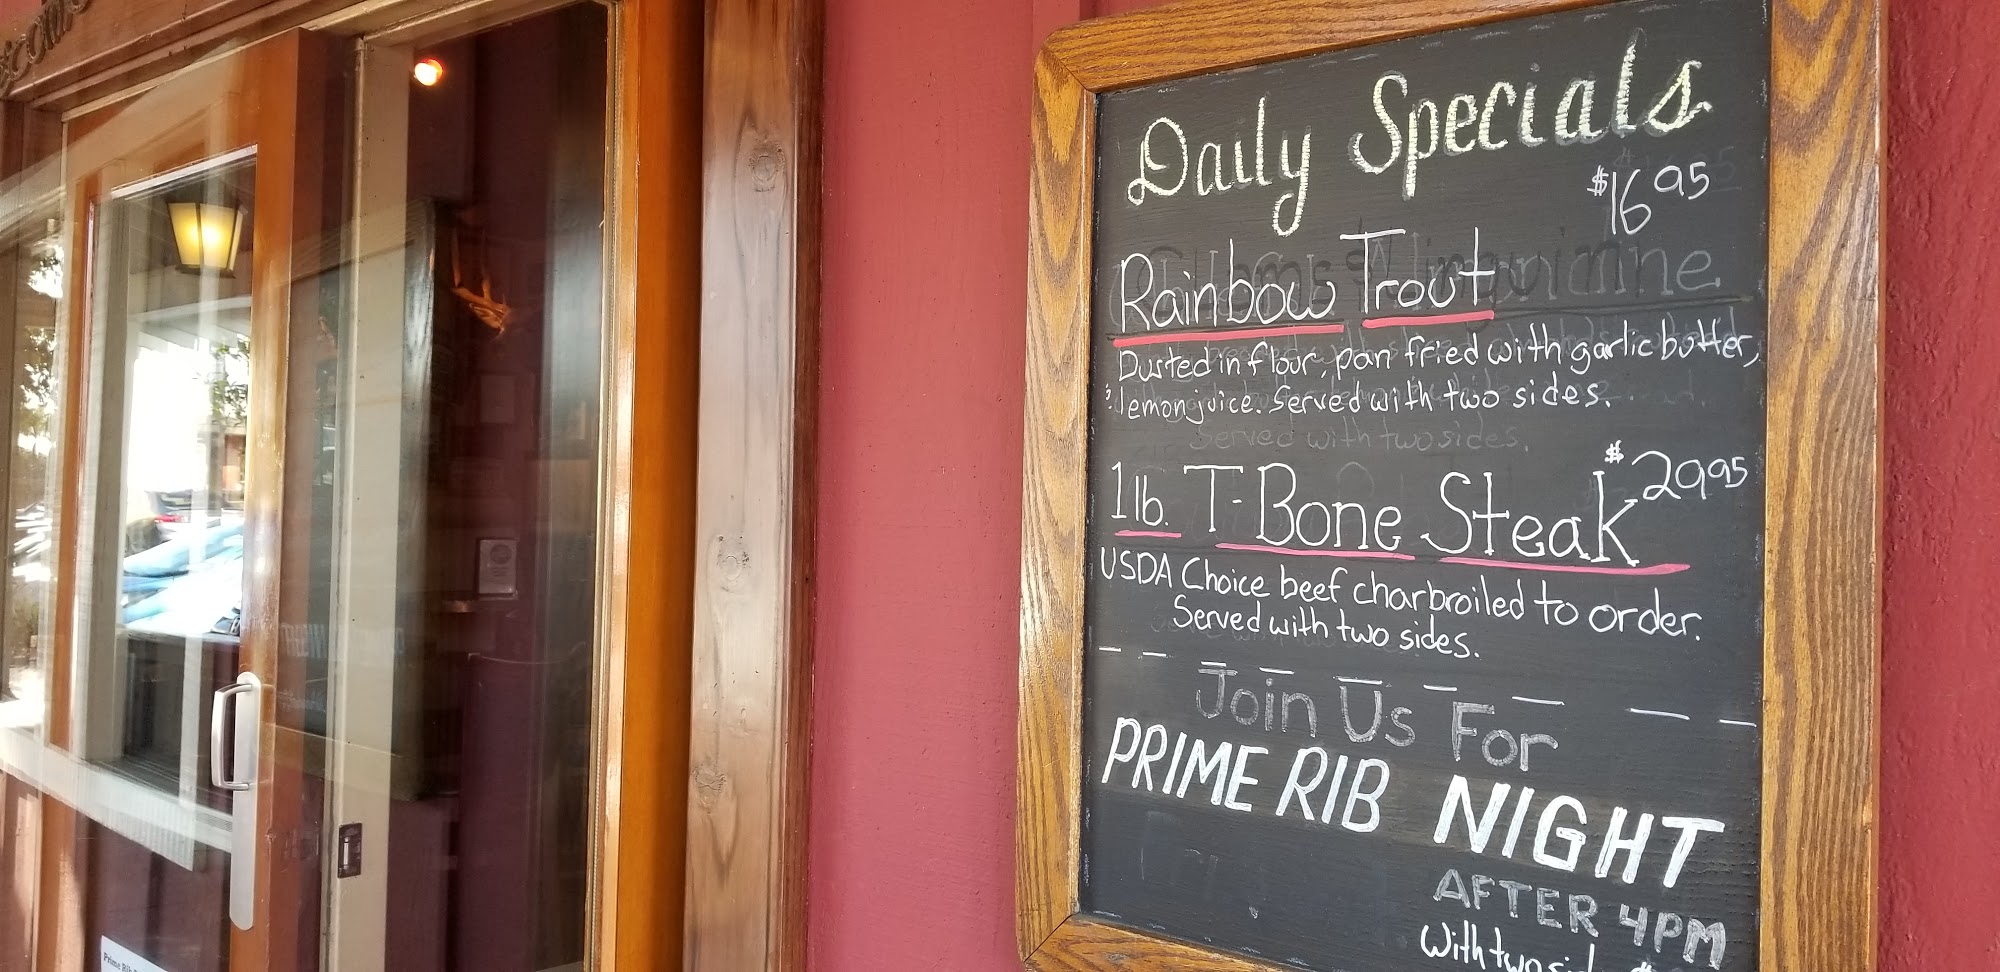 Daily Specials
$16.95
Rainbow Trout
Dusted in flour, pan fried with garlic butter,
& lemon juice. Served with two sides.
Served with two sides.
$29.95
1 lb. T-Bone Steak
USDA Choice beef charbroiled to order.
Served with two sides.
Join Us For
PRIME RIB NIGHT
AFTER 4PM
With two
Prime Rib